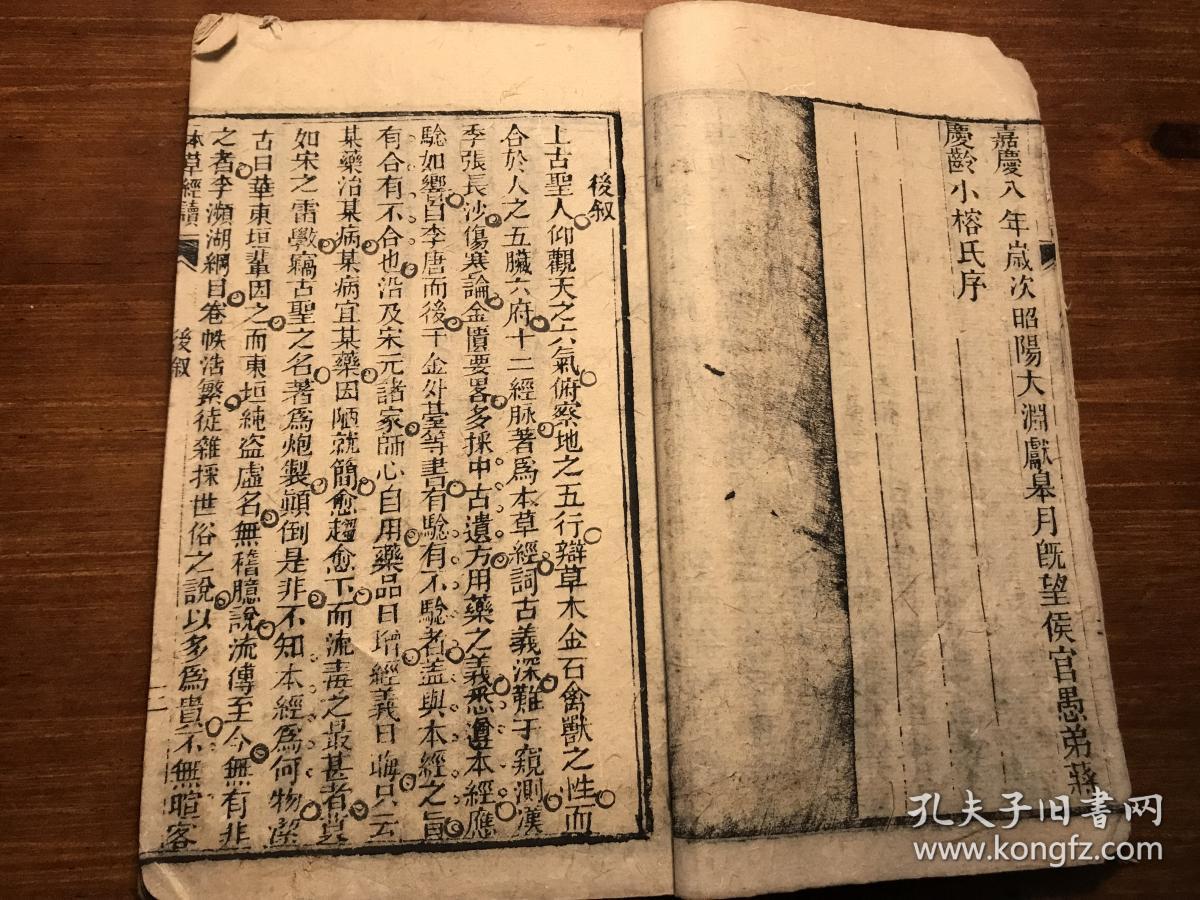 嘉慶八年歲次昭陽大淵獻皋月既望侯官愚弟蔣
慶齡小榕氏序
後叙
上古聖人仰觀天之六氣俯察地之五行辯草木金石禽獸之性而
合於人之五臟六府十二經脉著爲本草經詞古義深難于窺測漢
季張長沙傷寒論金匱要畧多採中古遺方用藥之義悉遵本經應
騐如響自李唐而後千金外臺等書有騐有不騐者盖與本經之旨
有合有不合也沿及宋元諸家師心自用藥品日增經義日晦只云
某藥治某病某病宜某藥因陋就簡愈趨愈下而流毒之最甚者莫
如宋之雷斆竊古聖之名著爲炮製顛倒是非不知本經爲何物潔
古日華東垣輩因之而東垣純盜虛名無稽臆說流傳至今無有非
之者李瀕湖綱目卷帙浩繁徒雜採世俗之說以多爲貴不無喧客
本草經讀
後叙
二
孔夫子旧书网
www.kongfz.com